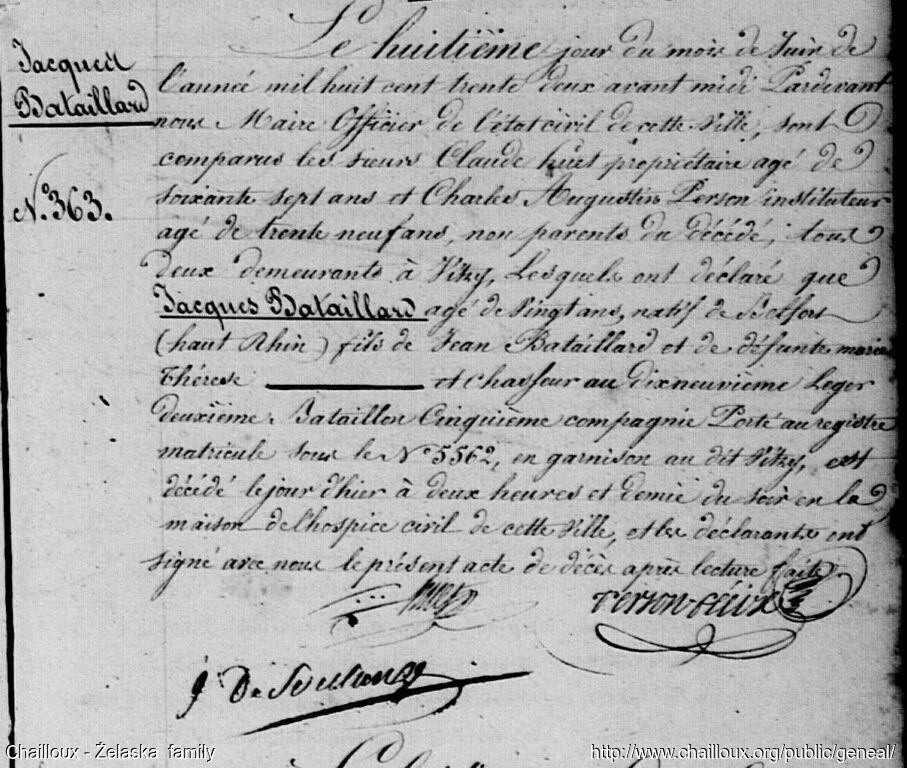 Jacques
Bataillard
N.º 363.
Le huitième jour du mois de Juin de
l'année mil huit cent trente deux avant midi Pardevant
nous Maire Officier de l'état civil de cette Ville, sont
comparus les sieurs Claude huet propriétaire agé de
soixante sept ans et Charles Augustin Person instituteur
agé de trente neuf ans, non parents du décédé, tous
deux demeurants à Vitry, Lesquels ont déclaré que
Jacques Bataillard agé de Vingt ans, natif de Belfort
(haut Rhin) fils de Jean Bataillard et de défunte marie
Thérese ———— et chasseur au dixneuvième Leger
deuxième Bataillon Cinquième compagnie Porté au registre
matricule sous le N.º 5562, en garnison au dit Vitry, est
décédé le jour d'hier à deux heures et demie du soir en la
maison de l'hospice civil de cette Ville, et les déclarants ont
signé avec nous le présent acte de décès après lecture faite
huet
Person
Chailloux - Żelaska family
http://www.chailloux.org/public/geneal/